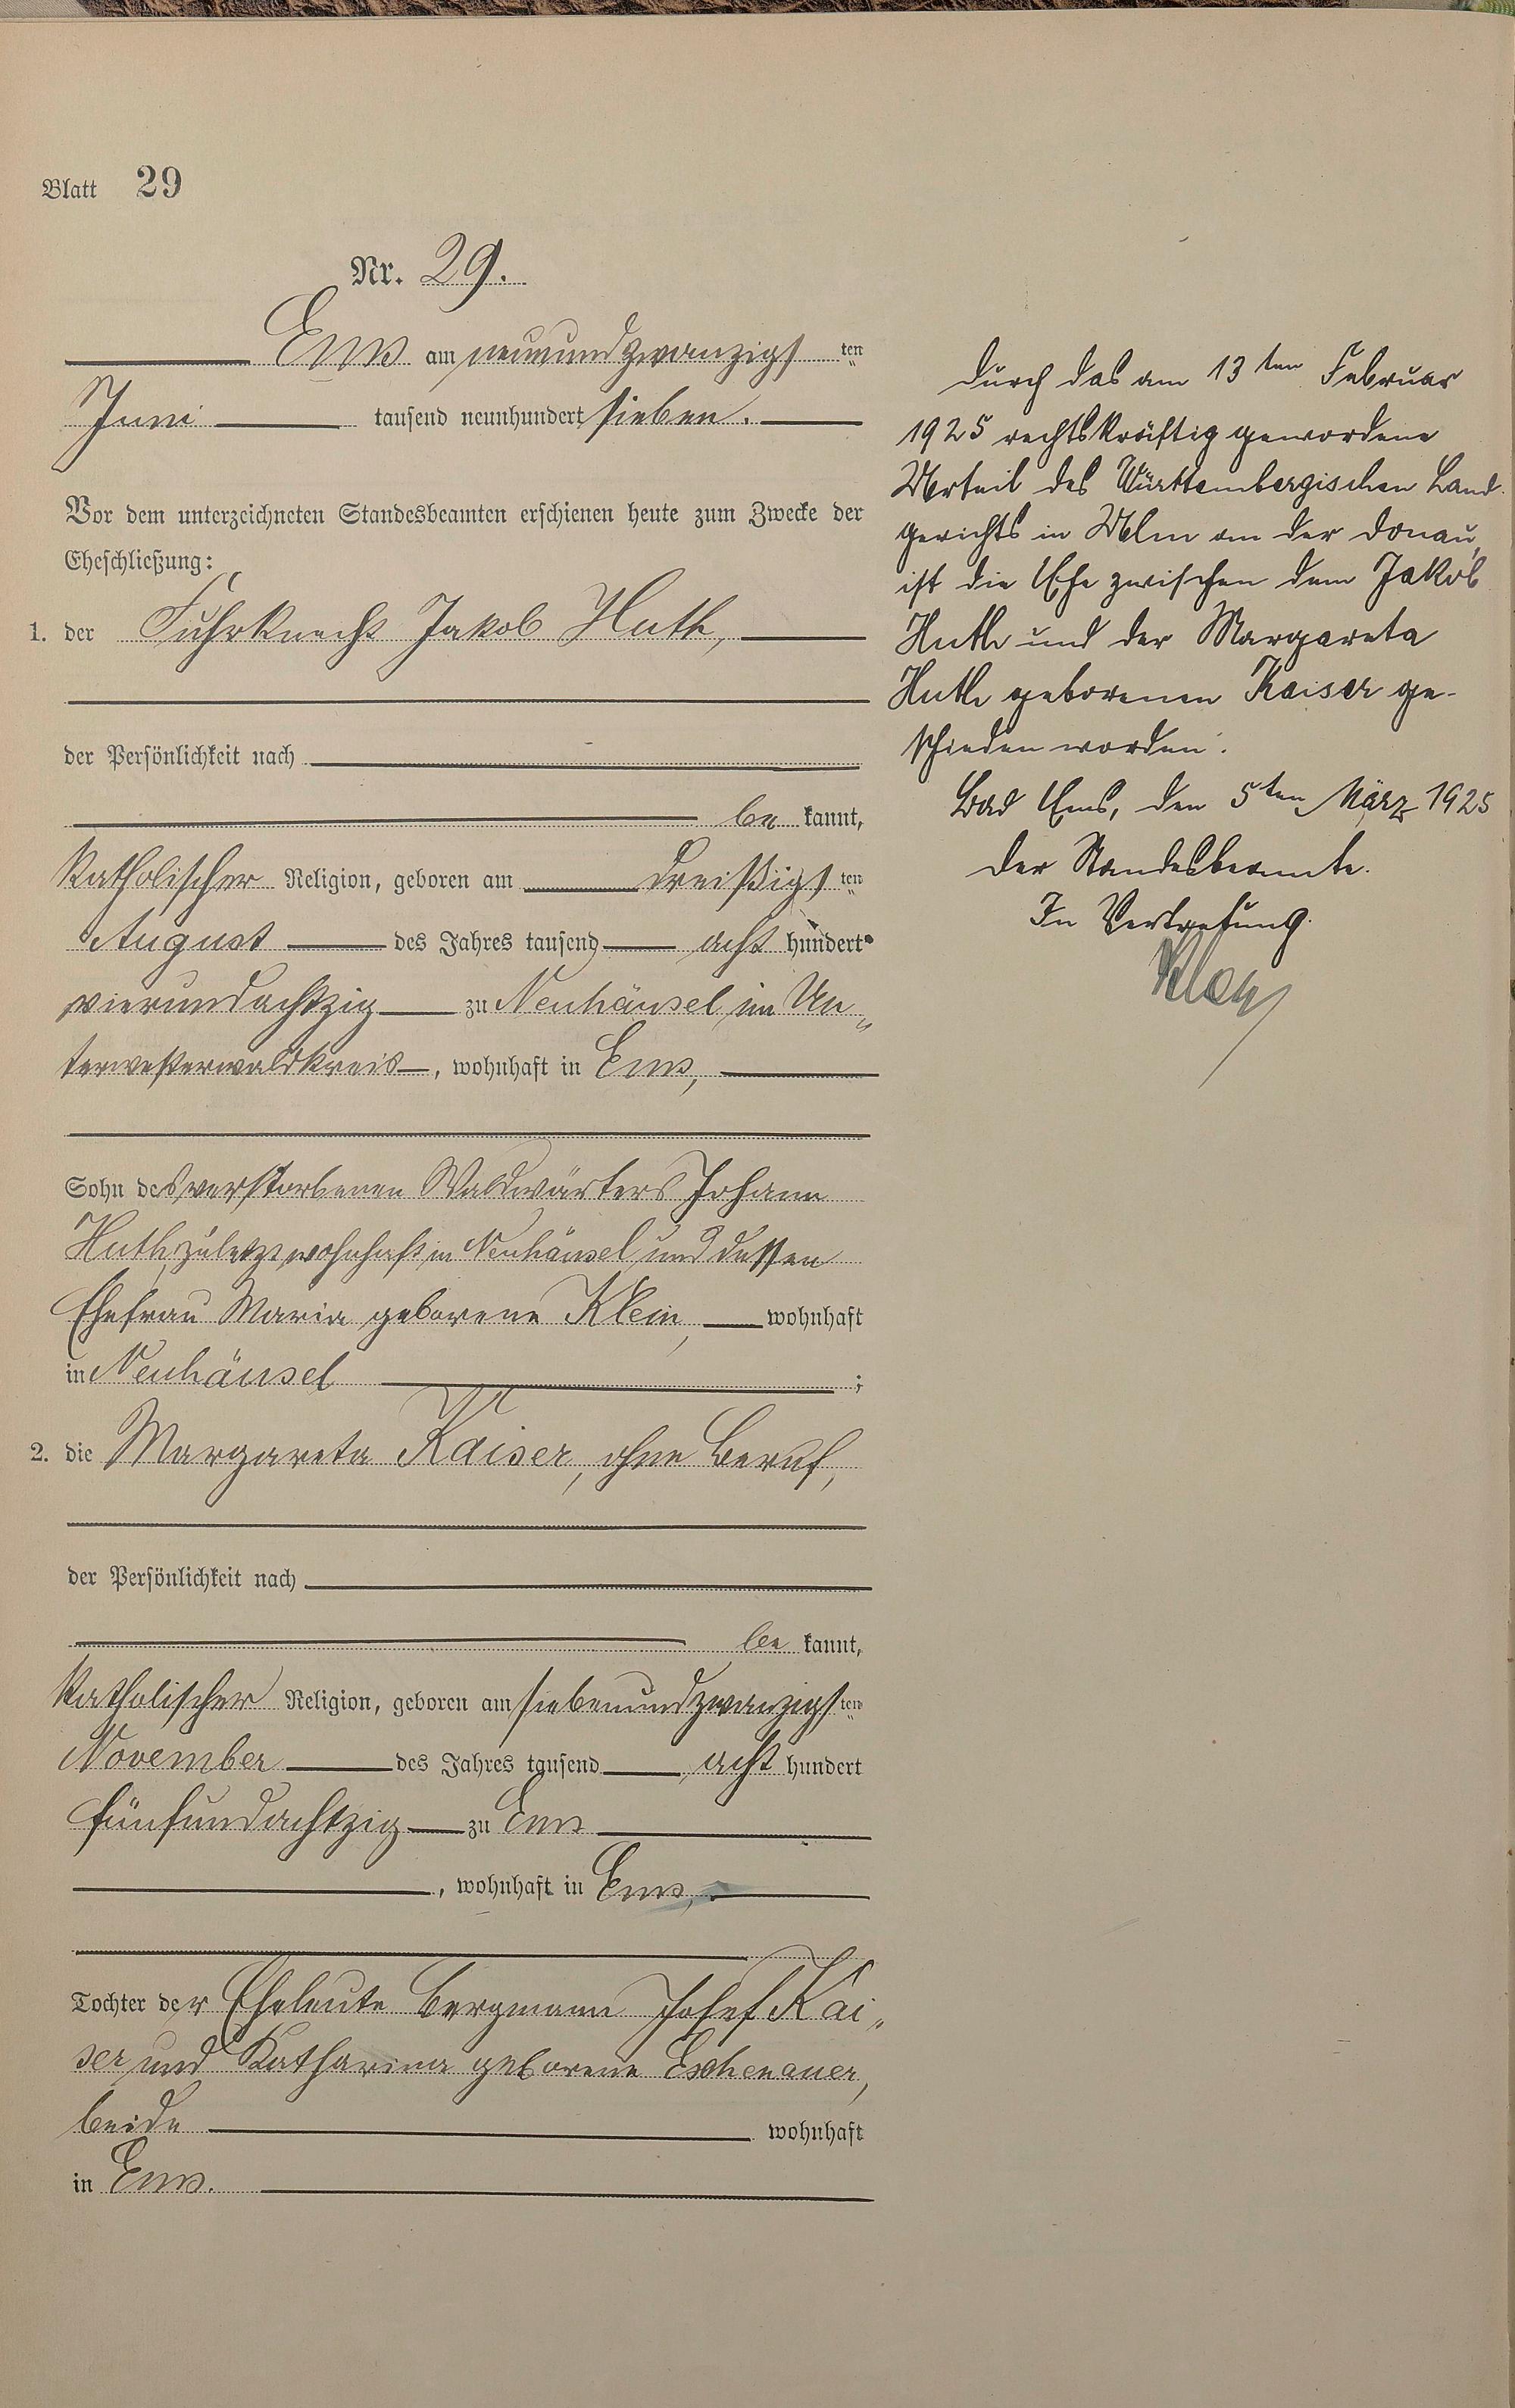 Blatt 29
Nr. 29.
Ems am neunundzwanzigs ten
Juni tausend neunhundert sieben.
Vor dem unterzeichneten Standesbeamten erschienen heute zum Zwecke der
Eheschließung:
1. der Fuhrknecht Jakob Huth,
der Persönlichkeit nach
be kannt,
katholischer Religion, geboren am dreißigs ten
August des Jahres tausend acht hundert
vierundachtzig zu Neuhäusel im Un„
terwesterwaldkreis, wohnhaft in Ems,
Sohn des verstorbenen Waldwärters Johann
Huth, zuletzt wohnhaft in Neuhäusel und dessen
Ehefrau Maria geborene Klein, wohnhaft
in Neuhäusel ;
2. die Margareta Kaiser, ohne Beruf,
der Persönlichkeit nach
be kannt,
katholischer Religion, geboren am siebenundzwanzigs ten
November des Jahres tausend acht hundert
fünfundachtzig zu Ems
, wohnhaft in Ems,
Tochter der Eheleute Bergmann Josef Kai„
ser und Katharina geborene Eschenauer,
beide wohnhaft
in Ems.
Durch das am 13ten Februar
1925 rechtskräftig gewordene
Urteil des Württembergischen Land-
gerichts in Ulm an der Donau,
ist die Ehe zwischen dem Jakob
Huth und der Margareta
Huth geborenen Kaiser ge-
schieden worden.
Bad Ems, den 5ten März 1925
Der Standesbeamte.
In Vertretung.